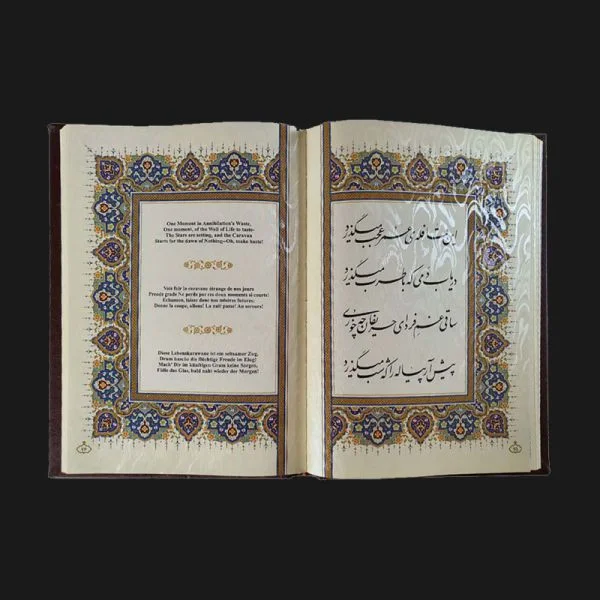 One Moment in Annihilation's Waste,
One moment, of the Well of Life to taste-
The Stars are setting, and the Caravan
Starts for the dawn of Nothing--Oh, make haste!
Vois fuir la caravane étrange de nos jours
Prends grade Ne perds pas ces doux moments si courts!
Echanson, laisse donc nos misères futures;
Donne la coupe, allons! La nuit passe! Au secours!
Diese Lebenskarawane ist ein seltsamer Zug,
Drum hasche die flüchtige Freude im Flug!
Mach' Dir im künftigen Gram keine Sorgen,
Fülle das Glas, bald naht wieder der Morgen!
این قافله‌ی عمر عجب میگذرد
دریاب دمی که با طرب میگذرد
ساقی غم فردای حریفان چه خوری
پیش آر پیاله را که شب میگذرد